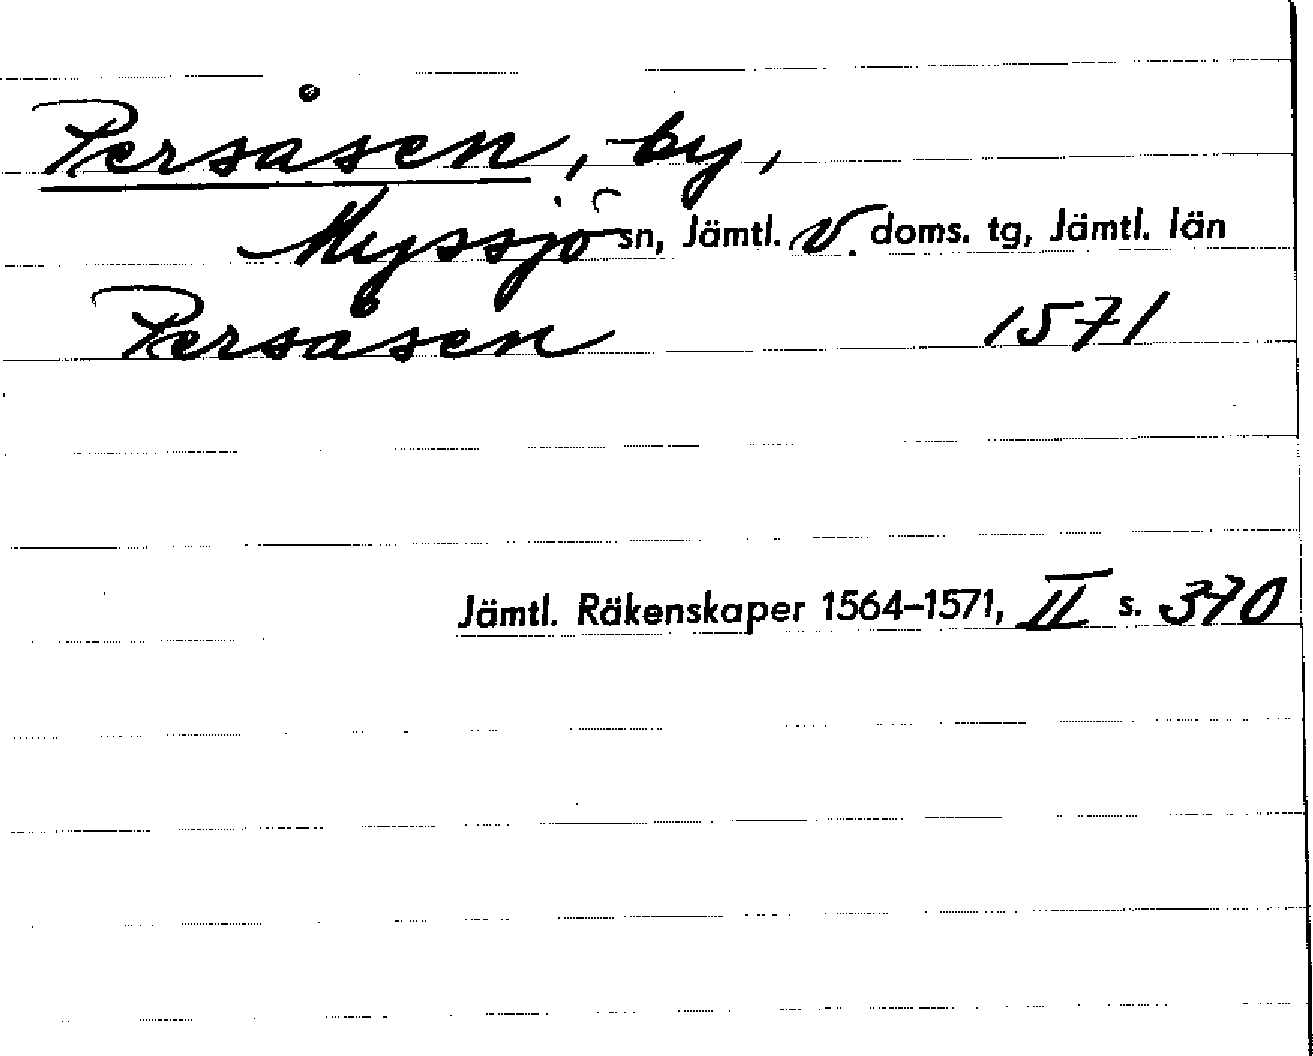 Persåsen, by,
Myssjö sn, Jämtl. v. doms. tg, Jämtl. län
Persåsen 1571
Jämtl. Räkenskaper 1564–1571, II s. 370